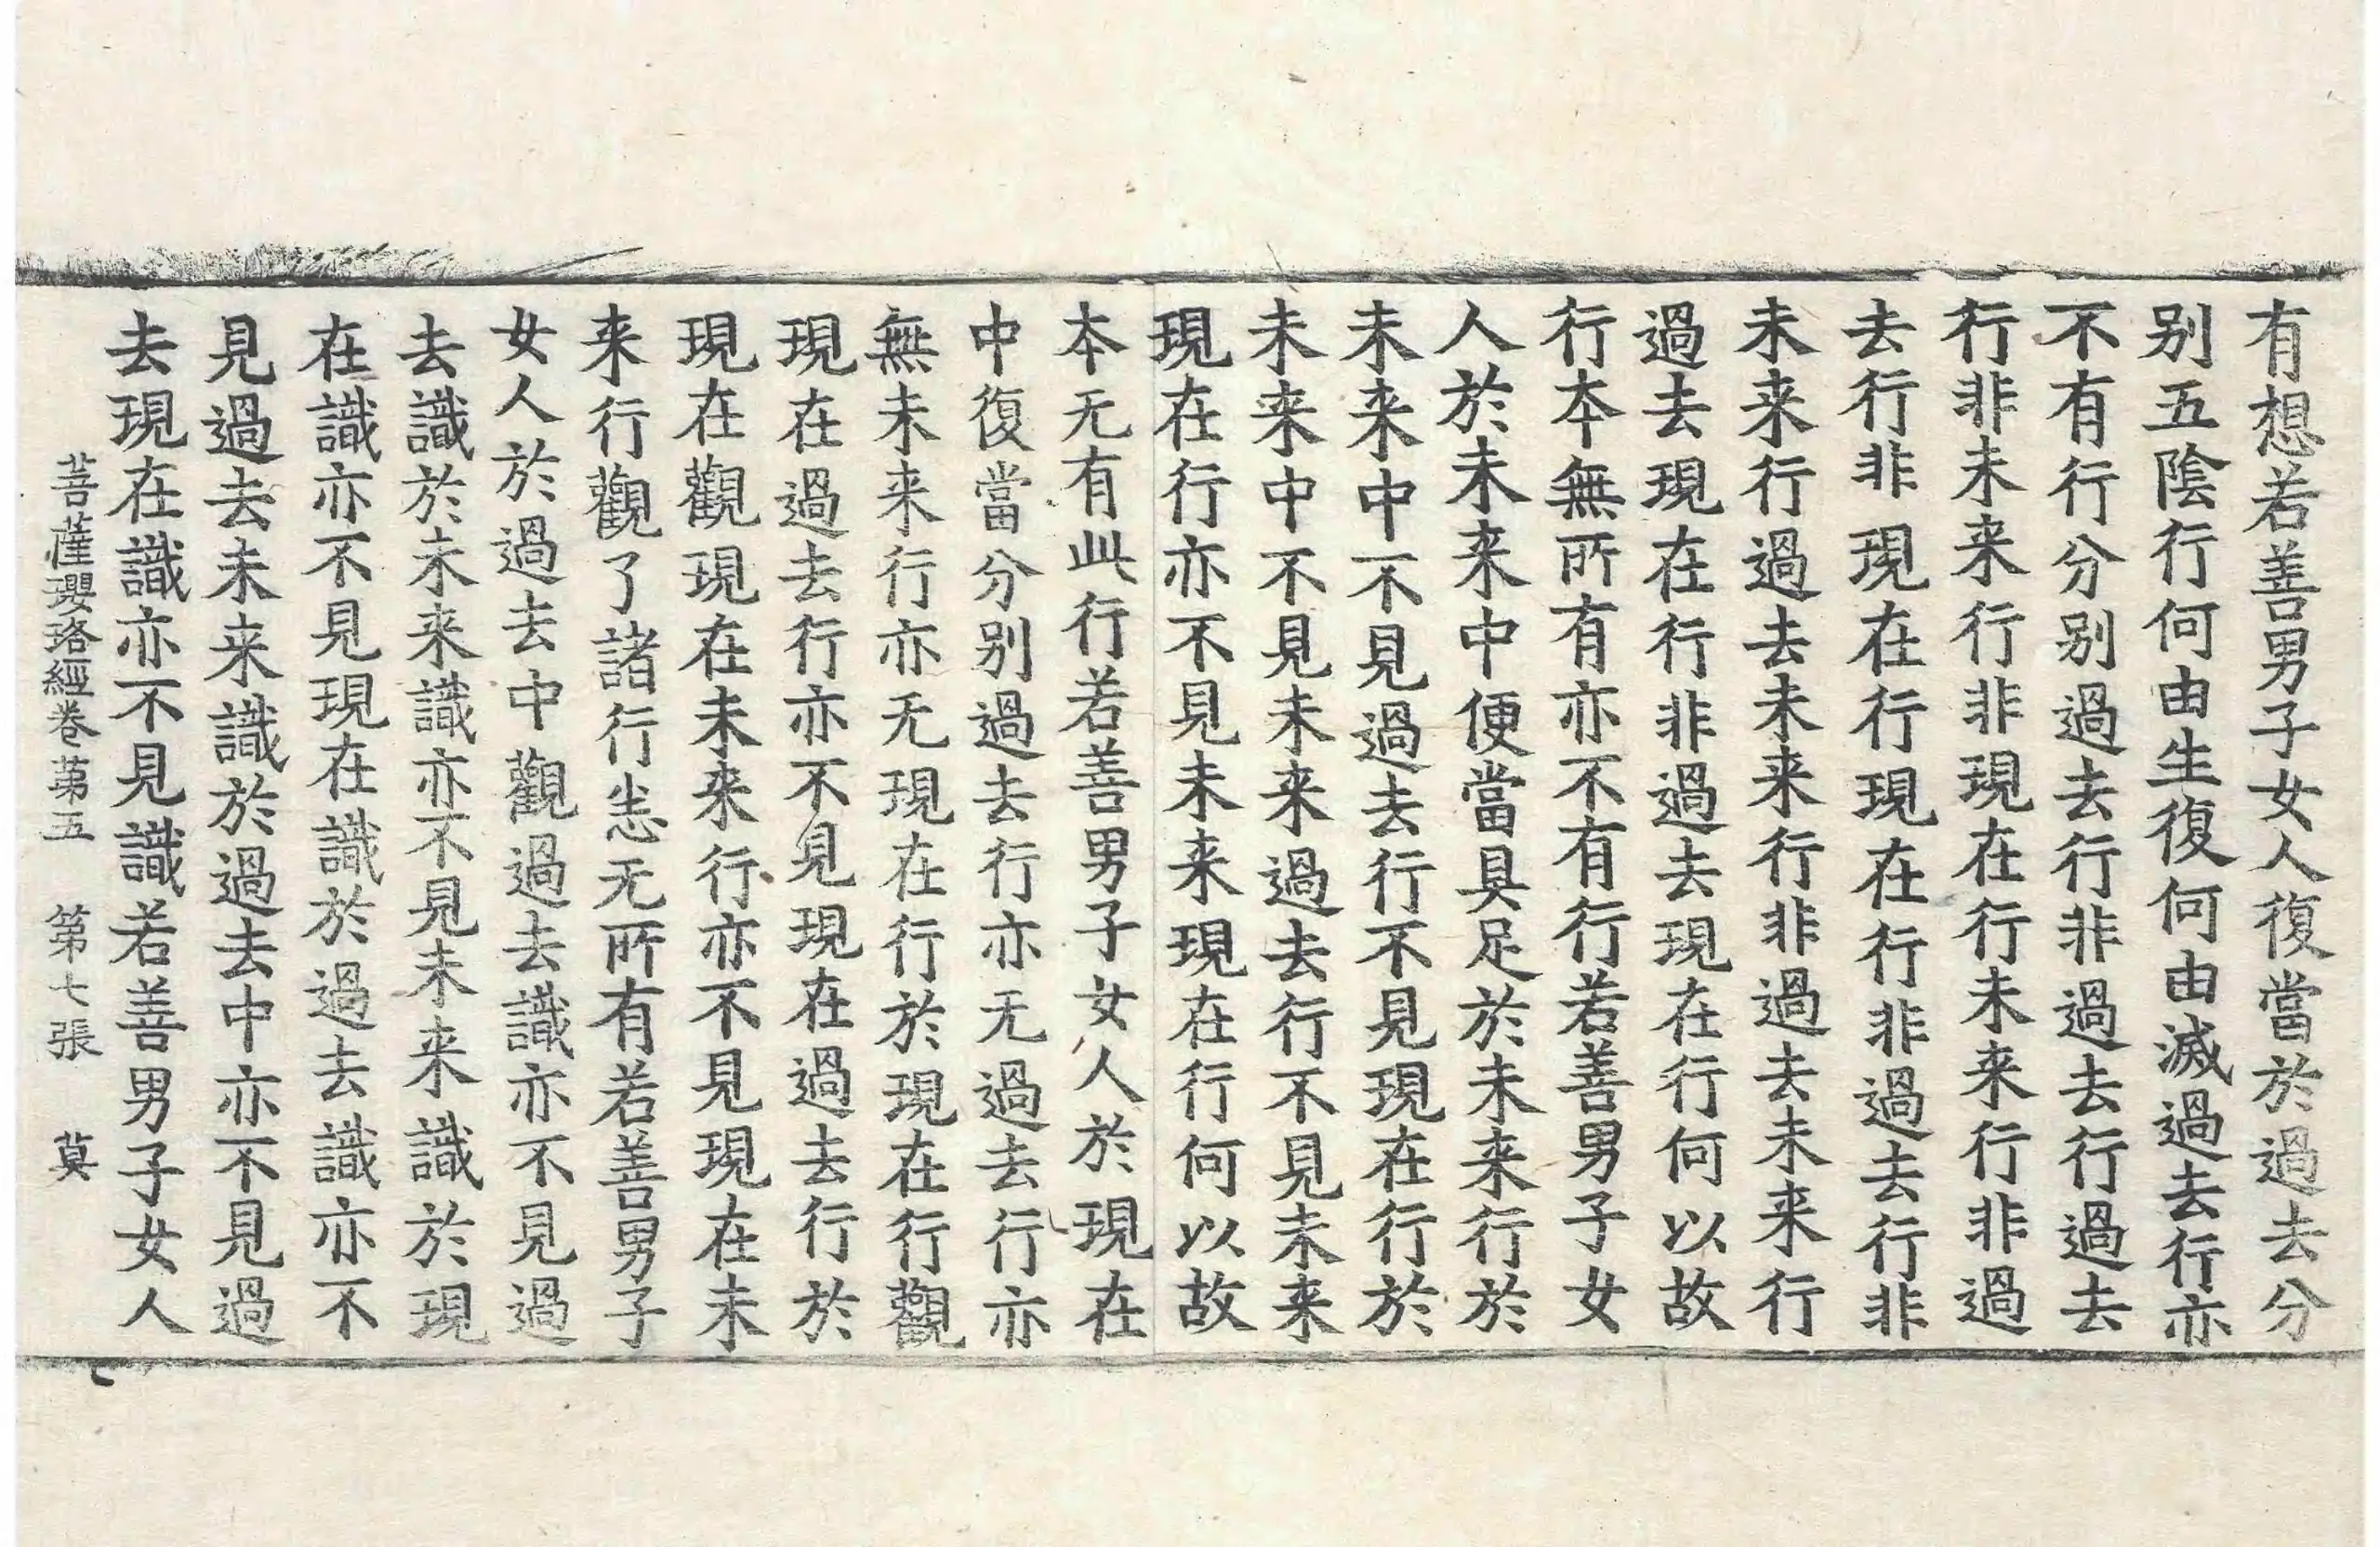 有想若善男子女人復當於過去分
别五陰行何由生復何由滅過去行亦
不有行分别過去行非過去行過去
行非未来行非現在行未来行非過
去行非現在行現在行非過去行非
未来行過去未来行非過去未来行
過去現在行非過去現在行何以故
行本無所有亦不有行若善男子女
人於未来中便當具足於未来行於
未来中不見過去行不見現在行於
未来中不見未来過去行不見未来
現在行亦不見未来現在行何以故
本无有此行若善男子女人於現在
中復當分别過去行亦无過去行亦
無未来行亦无現在行於現在行觀
現在過去行亦不見現在過去行於
現在觀現在未来行亦不見現在未
来行觀了諸行恙无所有若善男子
女人於過去中觀過去識亦不見過
去識於未来識亦不見未来識於現
在識亦不見現在識於過去識亦不
見過去未来識於過去中亦不見過
去現在識亦不見識若善男子女人
菩薩瓔珞經卷苐五 第七張 莫